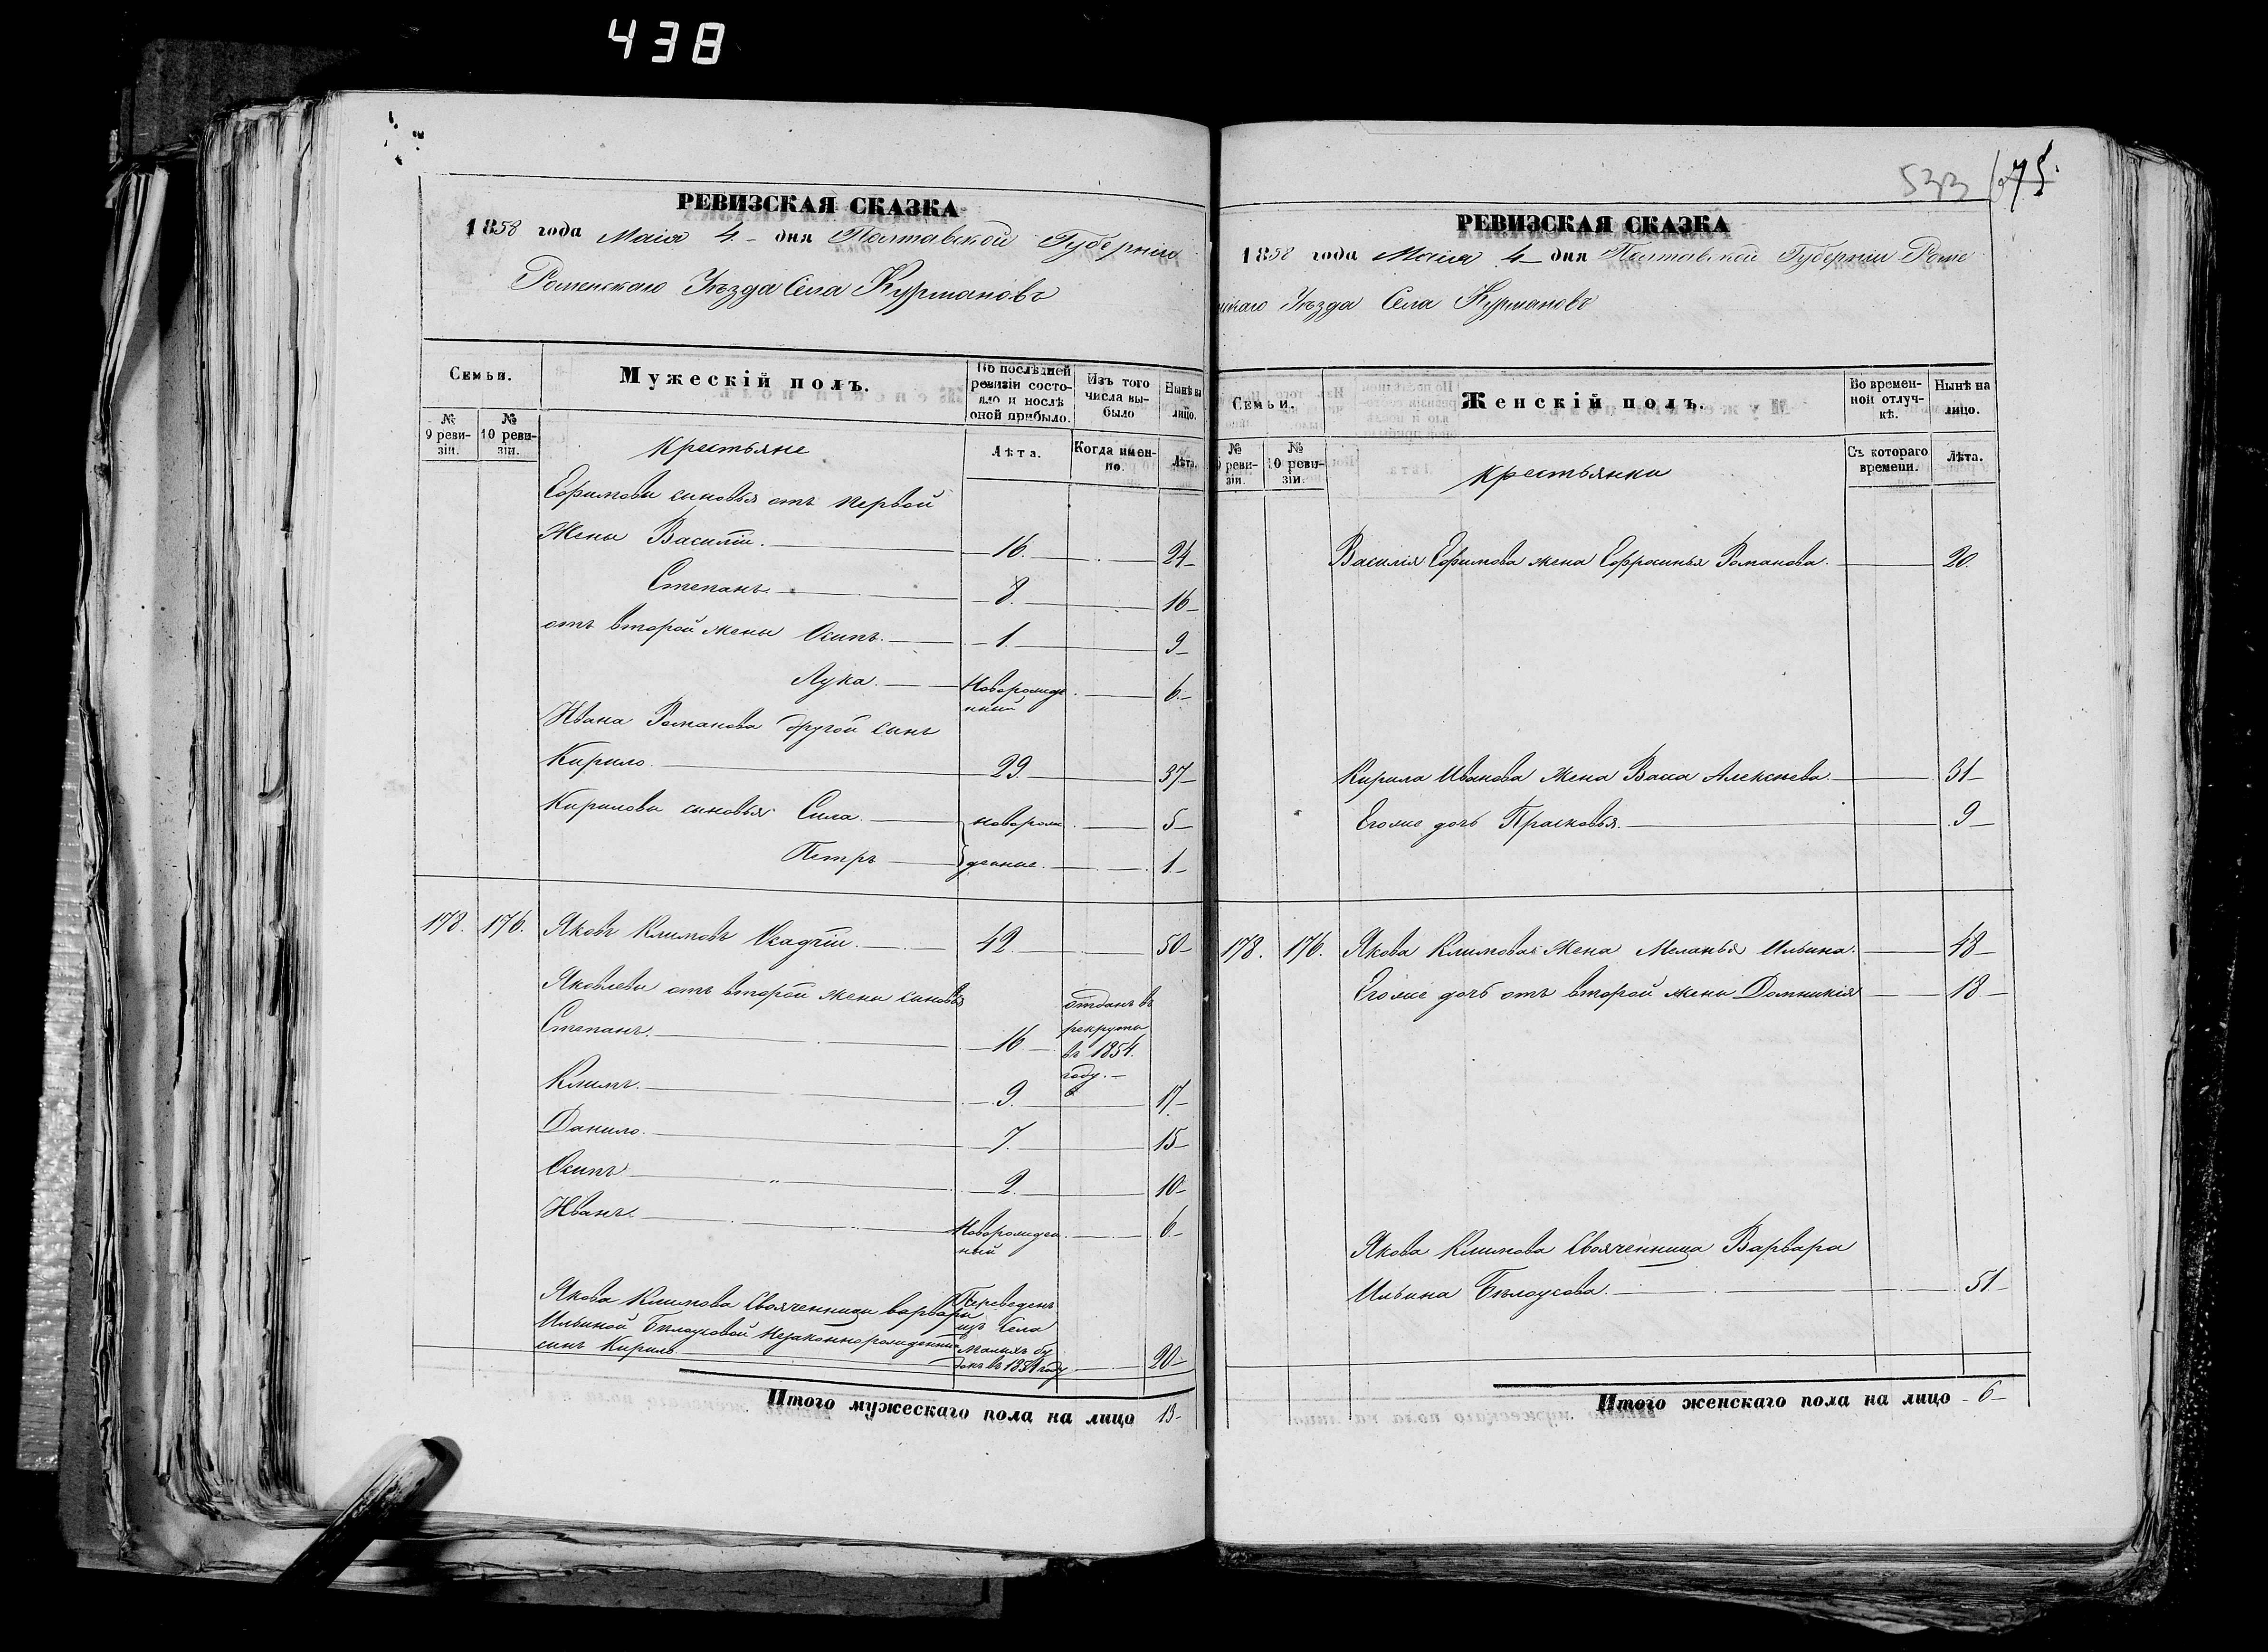 438
РЕВИЗСКАЯ СКАЗКА
1858 года Маія 4 дня Полтавской Губерніи
Роменскаго Уѣзда Села Курмановъ
Семьи.
Мужескій полъ.
По послѣдней ревизіи состояло и послѣ оной прибыло.
Изъ того числа выбыло
Нынѣ на лицо.
№ 9 ревизіи.
№ 10 ревизіи.
Крестьяне
Лѣта.
Когда именно.
Лѣта.
Ефимови синовья отъ первой
Жены Василій. 16. 24
Степанъ. 8. 16
отъ второй жены Осипъ. 1. 9
Лука. Новорожденный 6
Ивана Романова другой синъ
Кирило. 29. 37
Кирилови сыновья Сила. новорож 5
Петръ денные. 1
178. 176. Яковъ Климовъ Осадчій. 42. 50
Яковлеви отъ второй жены синовья
Степанъ. 16. отданъ въ рекруты въ 1854. году.
Климъ. 9. 17
Данило. 7. 15
Осипъ 2. 10
Иванъ. Новорожденный 6
Якова Климова Свояченници Варвари Переведенъ
Ильиной Бѣлоусовой Незаконнорожденний изъ Села
синъ Кирило. Малихъ будокъ въ 1851 году 20
Итого мужескаго пола на лицо 13
533
РЕВИЗСКАЯ СКАЗКА
1858 года Маія 4 дня Полтавской Губерніи Роме
нскаго Уѣзда Села Курмановъ
Семьи.
Женскій полъ.
Во временной отлучкѣ.
Нынѣ на лицо.
№ 9 ревизіи.
№ 10 ревизіи.
Крестьянки
Съ котораго времени.
Лѣта.
Василія Ефимова жена Ефросинья Романова. 20.
Кирила Иванова Жена Васа Алексѣева. 31
Егоже дочь Прасковья. 9
178. 176. Якова Климовая Жена Меланья Ильина. 48
Егоже дочь отъ второй жены Домникія 18
Якова Климова Свояченница Варвара
Ильина Бѣлоусова. 51
Итого женскаго пола на лицо 6